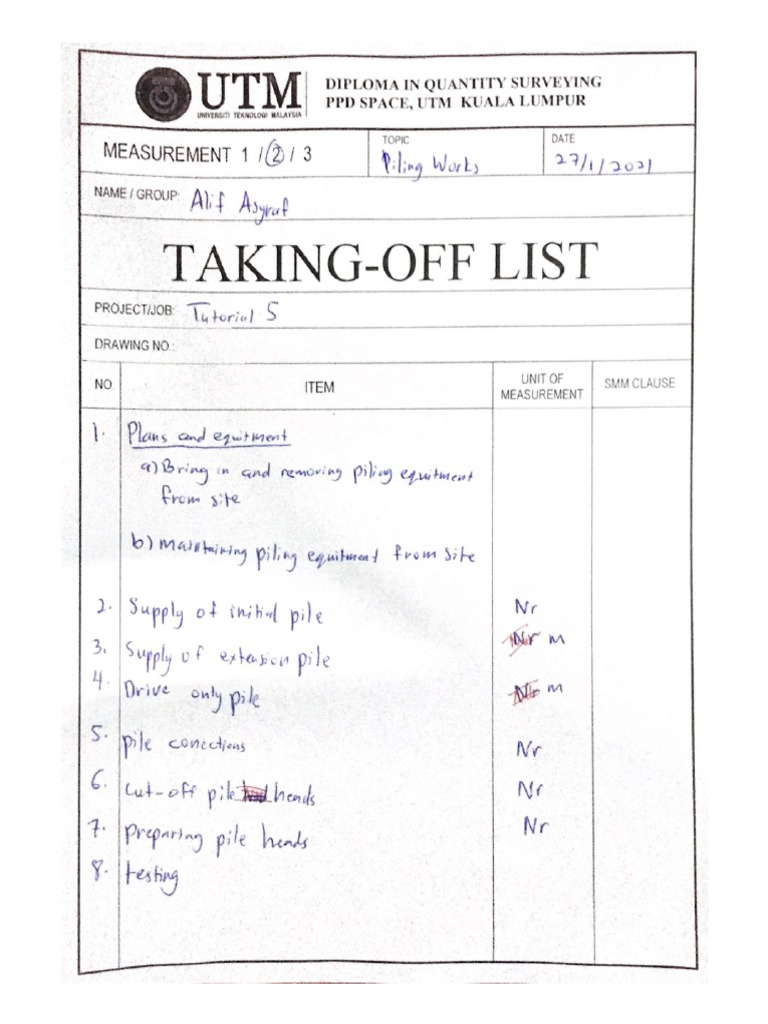 UTM
UNIVERSITI TEKNOLOGI MALAYSIA
DIPLOMA IN QUANTITY SURVEYING
PPD SPACE, UTM KUALA LUMPUR
MEASUREMENT 1 / 2 / 3
TOPIC
Piling Works
DATE
27/1/2021
NAME / GROUP: Alif Asyraf
TAKING-OFF LIST
PROJECT/JOB: Tutorial 5
DRAWING NO.:
NO. ITEM UNIT OF MEASUREMENT SMM CLAUSE
1. Plans and equitment
a) Bring in and removing piling equitment
from site
b) maintaining piling equitment from site
2. Supply of initial pile Nr
3. Supply of extension pile Nr m
4. Drive only pile m
5. pile conections Nr
6. Cut-off pile heads Nr
7. Preparing pile heads Nr
8. testing